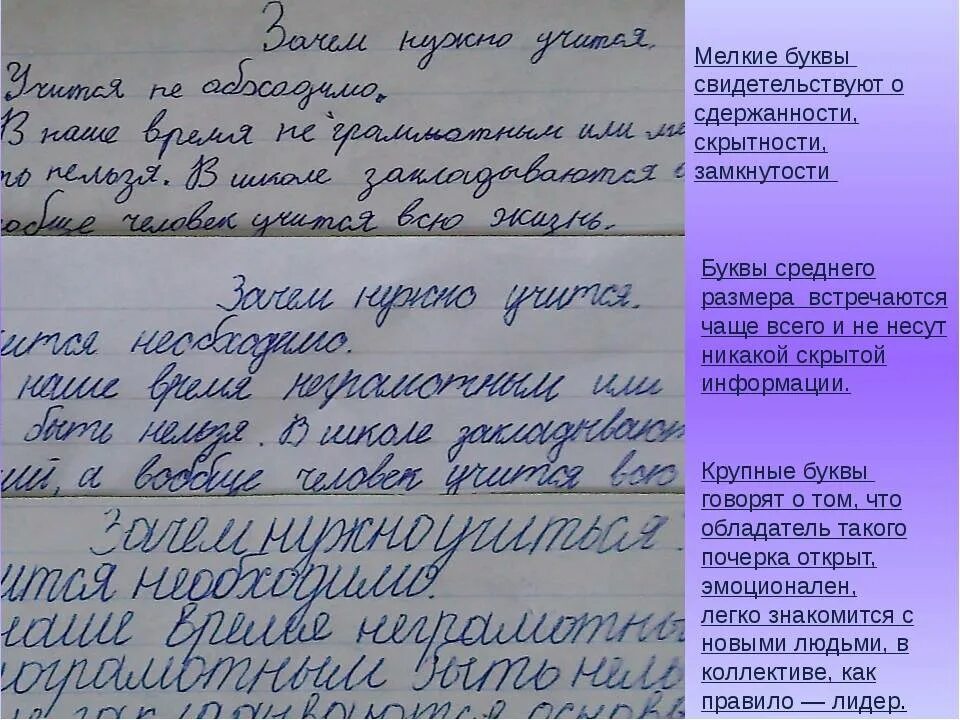 Зачем нужно учится.
Учится не абходимо.
В наше время не грамотным или ма
ть нельзя. В школе закладываются
ообще человек учится всю жизнь.
Зачем нужно учится.
ится необходимо.
наше время неграмотным или
быть нельзя. В школе закладывают
ий, а вообще человек учится всю
Зачем нужно учиться
ится необходимо.
наше время неграмотны
ограмотным быть нель
закладываются основы
Мелкие буквы
свидетельствуют о
сдержанности,
скрытности,
замкнутости
Буквы среднего
размера встречаются
чаще всего и не несут
никакой скрытой
информации.
Крупные буквы
говорят о том, что
обладатель такого
почерка открыт,
эмоционален,
легко знакомится с
новыми людьми, в
коллективе, как
правило — лидер.